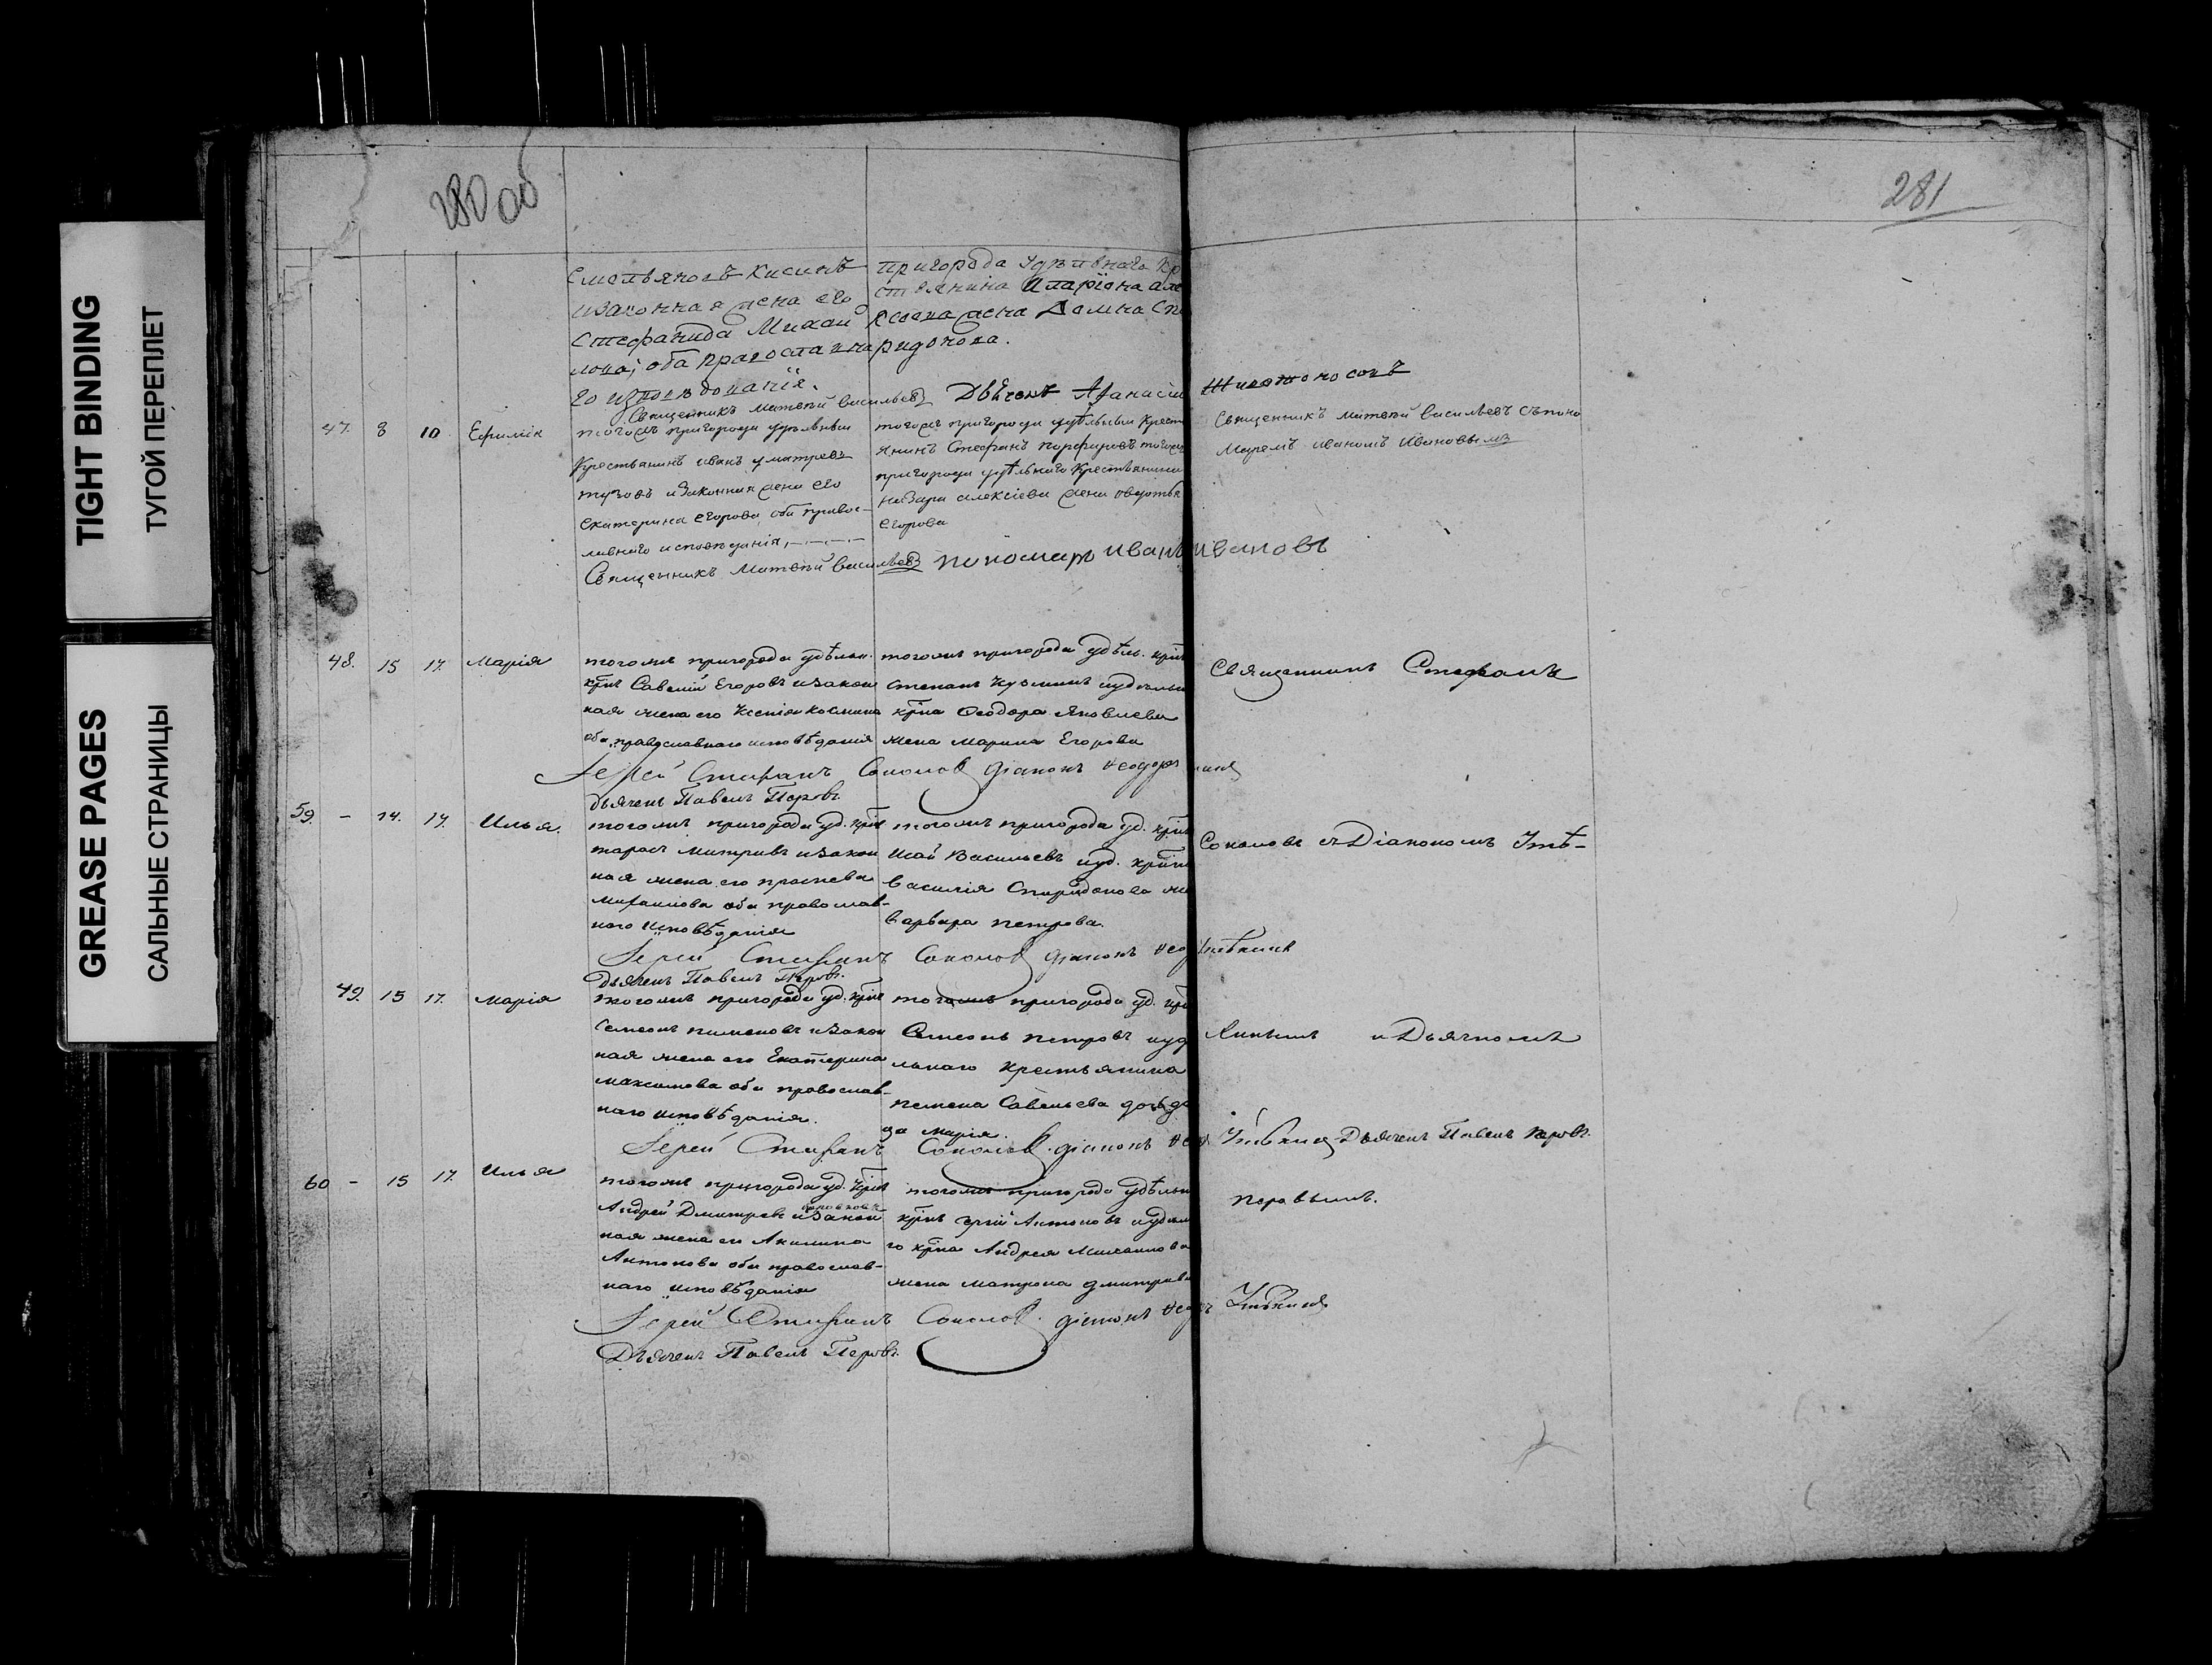 TIGHT BINDING
ТУГОЙ ПЕРЕПЛЕТ
GREASE PAGES
САЛЬНЫЕ СТРАНИЦЫ
280 об
281
Емельяновъ Кисинъ
изаконная жена его
Стефанида Михай
лова; оба Православна
го изповѣданія.
пригорода Удѣльнаго Кр
стьянина Иларіона Але
ксѣева жена Домна Сп
ридонова.
Священникъ Матвѣй Васильевъ Дьячекъ Афанасій Живоносовъ
47. 8 10 Ефимія
тогожъ пригорода удѣльный
Крестьянинъ Иванъ
изаконная жена его
Екатерина Егорова оба правос-
лавнаго исповѣданія,
тогожъ пригорода удѣльный Крест
янинъ Стефанъ Порфировъ тогожъ
пригорода удѣльнаго Крестьянина
Назара Алексіева жена
Егорова
Священникъ Матвѣй Васильевъ Съ поно
маремъ Иваномъ Ивановымъ
Священникъ Матвѣй Васильевъ пономарь Иванъ Ивановъ
48. 15 17. Марія
тогожъ пригорода удѣльн.
крнъ Савелій Егоровъ изакон
ная жена его Ксенія Космина
оба православнаго исповѣданія
тогожъ пригорода удѣль. крнъ
Степанъ Кузминъ иудѣльн
крна Ѳеодора Яковлева
жена Марина Егорова
Священникъ Стефанъ
Іерей Стефанъ Соколовъ діаконъ Ѳеодоръ
дьячекъ Павелъ Перовъ
59. - 14. 17. Илья.
тогожъ пригорода уд. крнъ
Тарасъ Митривъ изакон
ная жена его Прасковья
Михаилова оба православ-
наго исповѣданія
тогожъ пригорода уд. крнъ
Исай Васильевъ иуд. крна
Василія Спиридонова же
Варвара Петрова.
Соколовъ съ Діакономъ Утѣ-
Іерей Стефанъ Соколовъ діаконъ Ѳео Утѣхинъ
дьячекъ Павелъ Перовъ.
49. 15 17. Марія
тогожъ пригорода уд. крнъ
Семеонъ Пименовъ изакон
ная жена его Екатерина
Максимова оба православ-
наго исповѣданія.
тогожъ пригорода уд. крн
Семеонъ Петровъ иуд
льнаго крестьянина
Пемена Савельева
ца Марія.
хинымъ и Дьячкомъ
Іерей Стефанъ Соколовъ. діаконъ Ѳео Утѣхинъ Дьячекъ Павелъ Перовъ.
60 - 15 17. Илья
тогожъ пригорода уд. крнъ
Андрей Дмитревъ изакон
ная жена его Акилина
Антонова оба православ-
наго исповѣданія
тогожъ пригорода удѣльн
крнъ Антоновъ иудѣл
го крна Андрея Михаилова
жена Матрона Дмитрева
Перовымъ.
Іерей Стефанъ Соколовъ. діаконъ Ѳео Утѣхинъ
Дьячекъ Павелъ Перовъ.